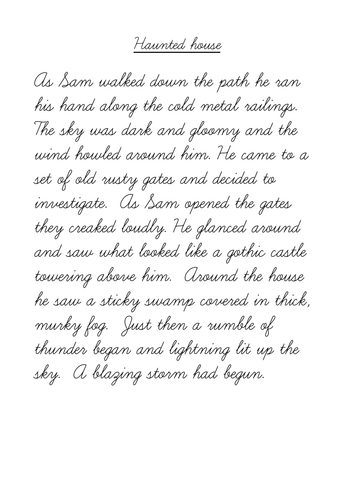 Haunted house
As Sam walked down the path he ran
his hand along the cold metal railings.
The sky was dark and gloomy and the
wind howled around him. He came to a
set of old rusty gates and decided to
investigate. As Sam opened the gates
they creaked loudly. He glanced around
and saw what looked like a gothic castle
towering above him. Around the house
he saw a sticky swamp covered in thick,
murky fog. Just then a rumble of
thunder began and lightning lit up the
sky. A blazing storm had begun.